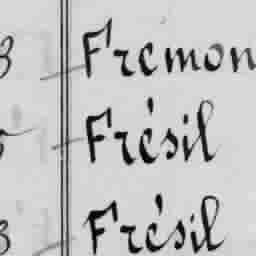 3 Fremon
Frésil
3 Frésil